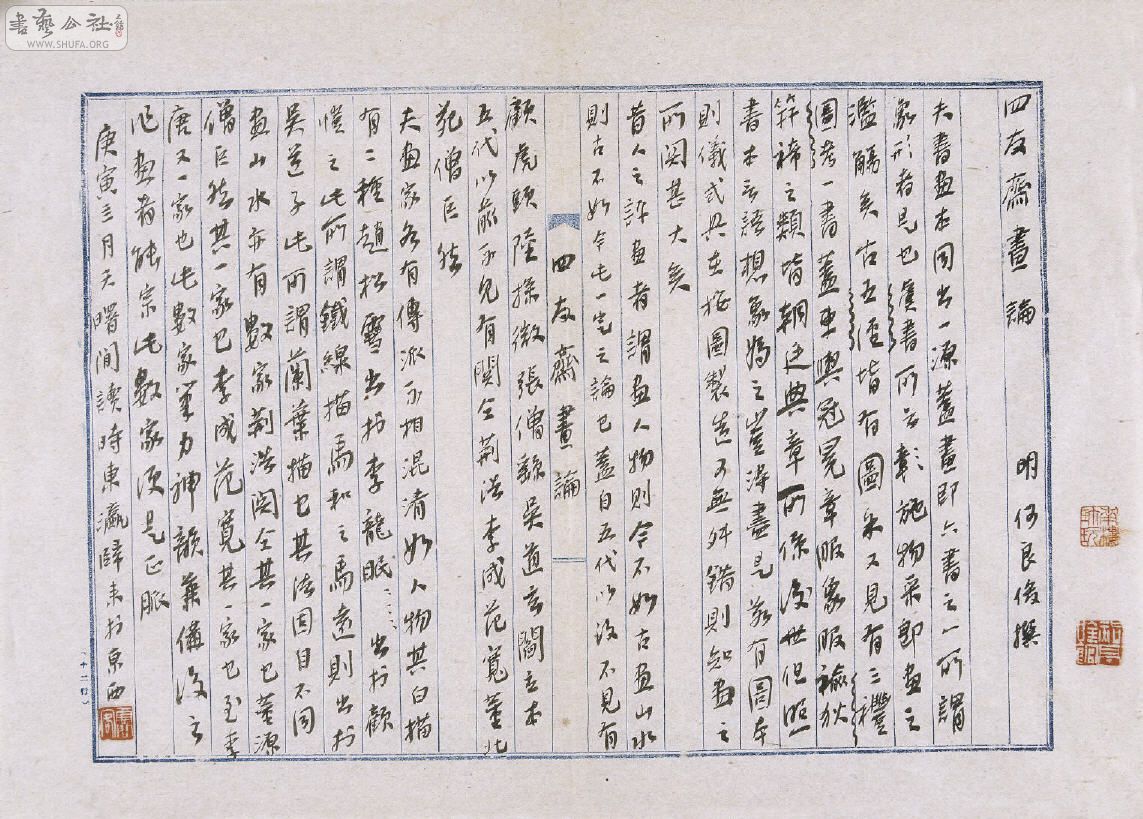 書藝公社
WWW.SHUFA.ORG
四友齋畫論 明何良俊撰
夫書畫本同出一源蓋畫即六書之一所謂
象形者是也虞書所云彰施物采即畫之
濫觴矣古五經皆有圖余又見有三禮
圖考一書蓋車輿冠冕章服象服褕狄
笄褘之類皆朝廷典章所係後世但照
書本言語想象為之豈得盡是若有圖本
則儀式具在按圖製造可無舛錯則知畫之
所関甚大矣
昔人之評畫者謂畫人物則今不如古畫山水
則古不如今此一定之論已蓋自五代以後不見有
四友齋畫論
顧虎頭陸探微張僧繇吳道玄閻立本
五代以前不見有関仝荊浩李成范寬董北
苑僧巨然
夫畫家各有傳派不相混淆如人物其白描
有二種趙松雪出於李龍眠、、、出於顧
愷之此所謂鐵線描馬和之馬遠則出於
吳道子此所謂蘭葉描也其法固自不同
畫山水亦有數家荊浩関仝其一家也董源
僧巨然其一家也李成范寬其一家也至李
唐又一家也此數家筆力神韻兼備後之
作畫者能宗此數家便是正脈
庚寅三月天曙間讀時東瀛歸來於京西